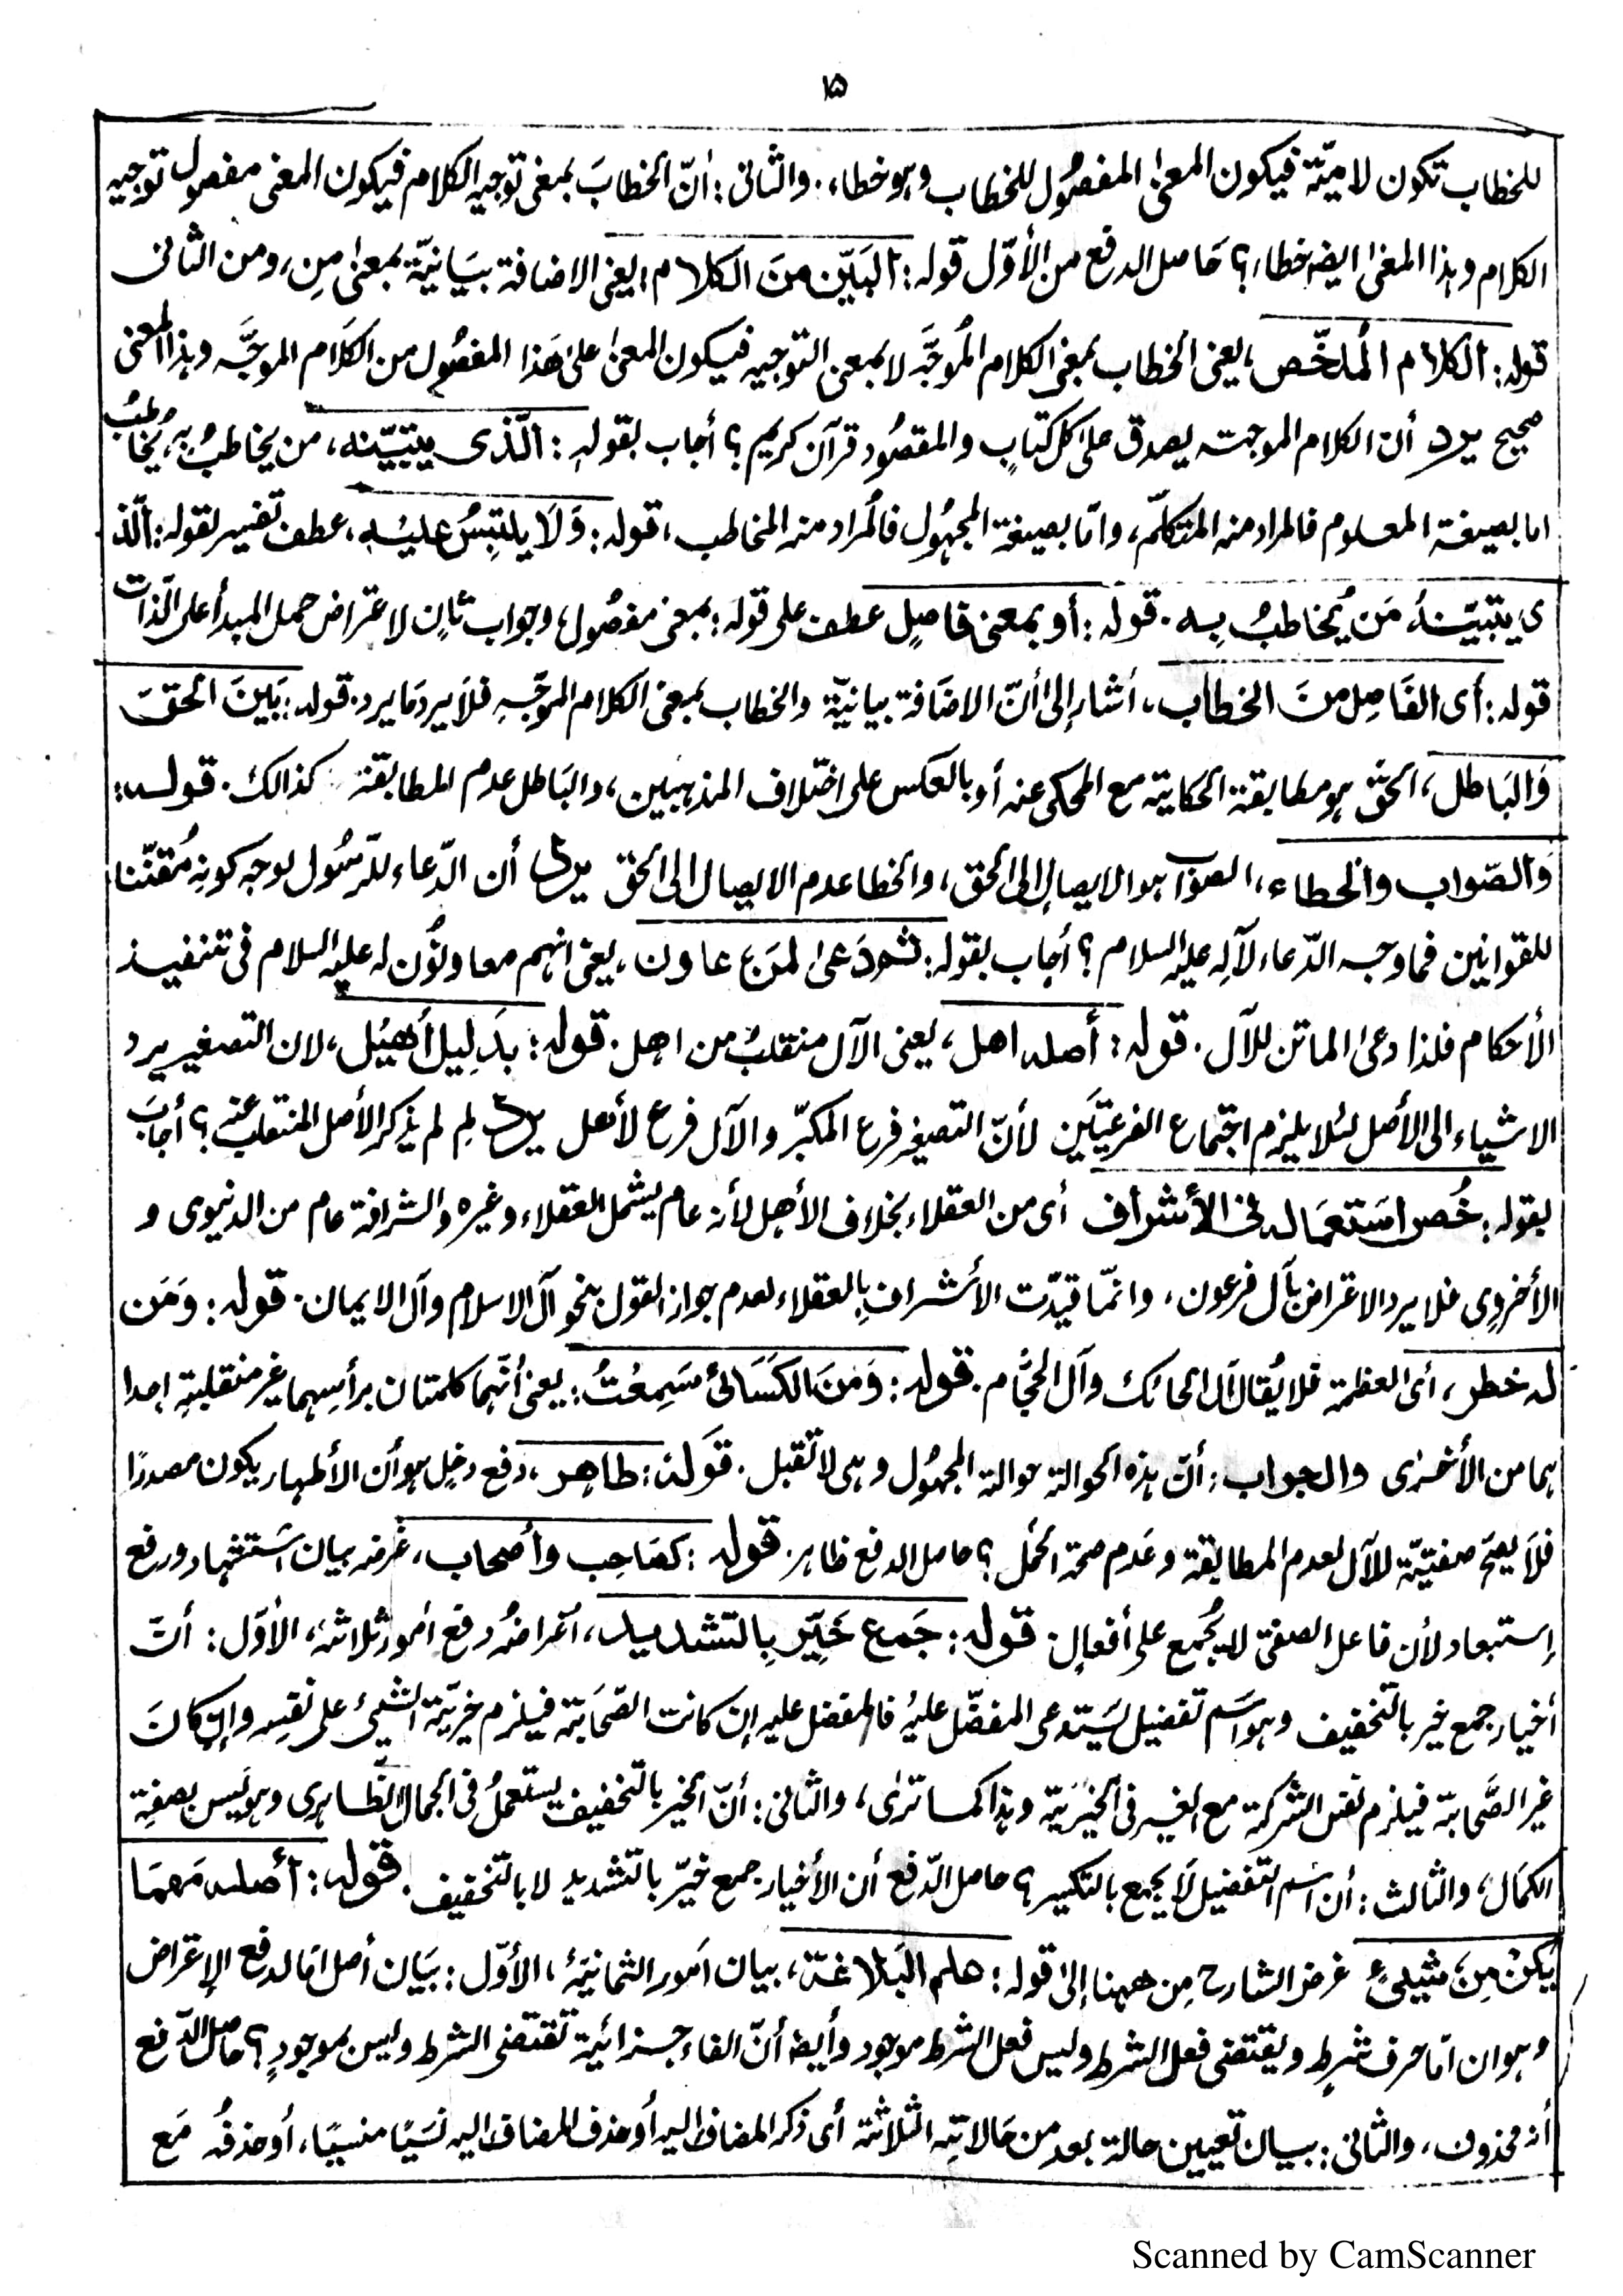 ۱۵
للخطاب تكون لاميّة فيكون المعنىٰ المفصُول للخطاب وهو خطاء. والثانى: أنّ الخطابَ بمعنى توجيه الكلام فيكون المعنى مفصول توجيه
الكلام وهذا المعنىٰ ايضه خطاء؟ حَاصل الدرفع من الأوّل قوله: البَيّن منَ الكلام ايعنى الاضافة بيَانيّة بمعنىٰ مِن، ومن الثانى
قوله: الكلام المُلخّص، يعنى الخطاب بمعنى الكلام المُوجَّه لا بمعنى التوجيه فيكون المعنىٰ علىٰ هَذا المفصُول من الكَلام الموجَّه وهذا المعنى
صحيح يرد أن الكلام الموجه يصدق على كل كتابٍ والمقصُود قرآن كريم؟ أجاب بقوله: الّذى يتبيّنه، من يخاطبُ به، يُخاطبُ
اما بصيغة المعلوم فالمراد منه المتكلّم، وامّا بصيغة المجهُول فالمُراد منه المخاطب، قوله: وَلَا يلتبِسُ عليْه، عطف تفسير لقوله: الّذ
ى يتبيّنهُ، مَن يُخاطبُ بِه. قوله: أو بمعنى فاصِلٍ عطف على قوله: بمعنى مفصُول، وجواب ثانٍ لاعتراض حمل المبدأ على الذات
قوله: أى الفَاصِل منَ الخطاب، أشار إلىٰ أنّ الاضَافة بيانيّة والخطاب بمعنى الكلام الموجّهِ فلَا يرد مَا يرد. قوله: بَينَ الحقّ
وَالبَاطل، الحقّ هو مطابقة الحكاية مع المحكى عنه أو بالعكس على اختلاف المذهبين، والبَاطل عدم المطابقة كذالك. قوله:
وَالصّواب والخطاء، الصوَاب هو الايصال إلى الحق، والخطا عدم الايصال الى الحق يرد أن الدّعاء للرّسُول لوجه كونه مُقنّنا
للقوانين فما وجه الدّعاء لآلِه عليه السلام؟ أجاب بقوله: ثم دَعىٰ لمَن عاون، يعنى انهم معاونُون له عليه السلام فى تنفيذ
الأحكام فلذا دعىٰ الماتن للآل. قوله: أصله اهل، يعنى الآل منقلبُ من اهل. قوله: بدَلِيل أهيل، لان التصغير يرد
الاشياء الى الأصل لئلا يلزم اجتماع الفرعيّتين لأنّ التصغير فرع المكبّر والآل فرع لأهل يرد لِم لم يذكر الأصل المنتقلب عنه؟ أجابَ
بقوله: خُصر استعمَاله فى الأشراف أى من العقلاء بخلاف الأهل لأنه عام يشمل العقلاء وغيره والشرافة عام من الدنيوى و
الأخروى فلا يرد الاعتراض بآل فرعون، وانمّا قيدّت الأشراف بالعقلاء لعدم جواز القول بنحو آل الاسلام وآل الايمان. قوله: وَمَن
له خطر، أى العظمة فلا يُقال آل الحائك وآل الحجّام. قوله: وَمنَ الكسَائى سَمِعْتُ: يعنى أنّهما كلمتان برأسِهما غير منقلبةٍ احدا
هما من الأخرىٰ والجواب: أنّ هذه الحوالة حوالة المجهُول وهى لا تُقبل. قوله: طاهر، دفع دخل هو أن الأطهار يكون مصدرًا
فلَا يصح صفتيّة للآل لعدم المطابقة وعَدم صحة الحمل؟ حاصل الدفع ظاهر. قوله: كصَاحِب وأصحاب، غرضه بيان استشهاد ورفع
إستبعاد لأن فاعل الصفتى لا يُجمع على أفعالٍ قوله: جَمع خَيِّر بِالتشديد، أغراضُه دفع أمور ثلاثة، الأوّل: أنّ
أخيار جمع خير بالتخفيف وهو اسم تفضيل يَستدعى المفضّل عليهُ فالمفضل عليه إن كانت الصّحَابَة فيلزم خيريّة الشيئ على نفسِه وإن كانَ
غير الصَّحابة فيلزم نفس الشركة مع الغير فى الخيريّة وهذا كما ترىٰ، والثانى: أنّ الخير بالتخفيف يستعملُ فى الجمال الظّاهرى وهو ليس بصفةِ
الكمَال، والثالث: أن اسم التفضيل لَا يجمع بالتكسير؟ حاصل الدّفع أن الأخيار جمع خيّر بالتشديد لا بالتخفيف. قوله: أصله مَهمَا
يكنْ مِنْ شيئٍ غرض الشارح مِن ههنا إلىٰ قوله: هلم البَلاغة، بيان أمور الثمانية، الأوّل: بيَان أصل امّا لدفع الإعتراض
وهو ان امّا حرف شرطٍ ويقتضى فعل الشرط وليس فعل الشرط موجود وأيضًا أنّ الفاء جزائية تقتضى الشرط وليس بموجودٍ؟ حاصل الدّفع
أنه محذوف، والثانى: بيان تعيين حالة بعد من حَالاتِه الثلاثة أى ذكر المضاف اليه أو حذف المضاف اليه نسَيًا منسيًا، أو حذفُه مَع
Scanned by CamScanner